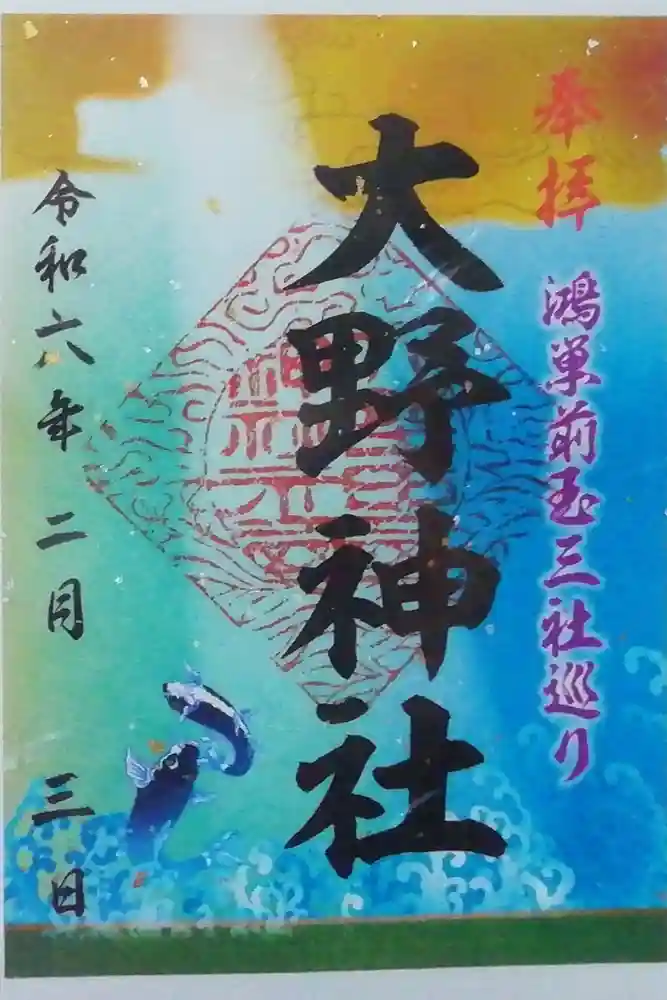 奉拝
鴻巣前玉三社巡り
大野神社
令和六年二月三日